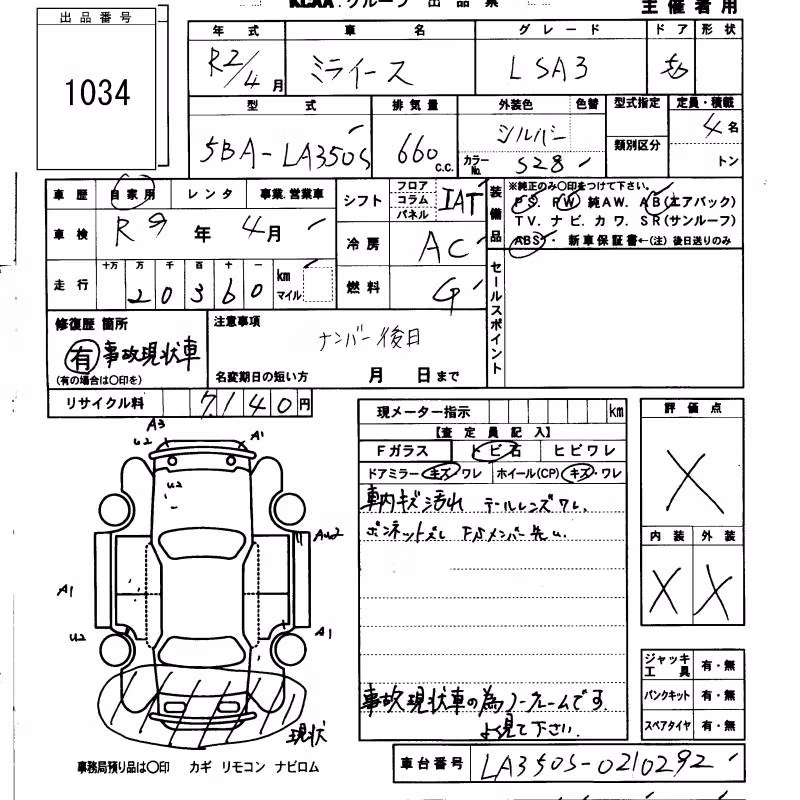 KCAA.グループ 出品票
主催者用
出品番号
1034
年式 車名 グレード ドア 形状
R2/4月 ミライース LSA3
型式 排気量 外装色 色替 型式指定 定員・積載
5BA-LA350S 660 c.c. シルバー 4名
カラーNo. S28 類別区分 トン
車歴 自家用 レンタ 事業.営業車
車検 R9年4月
走行 十万 万 千 百 十 一 km マイル
20360
シフト フロア コラム パネル IAT
冷房 AC
燃料 G
装備品
※純正のみ○印をつけて下さい。
PS. PW 純AW. AB(エアバック)
TV. ナビ. カワ. SR(サンルーフ)
ABS・新車保証書←(注) 後日送りのみ
セールスポイント
修復歴 箇所
有 事故現状車
(有の場合は○印を)
注意事項
ナンバー後日
名変期日の短い方 月 日まで
リサイクル料 7,140円
現メーター指示 km
【査定員記入】
Fガラス トビ石 ヒビワレ
ドアミラー キズ・ワレ ホイール(CP) キズ・ワレ
車内キズ汚れ テールレンズワレ.
ボンネットズレ
事故現状車の為ノークレームです.
よく見て下さい.
評価点
X
内装 外装
X X
ジャッキ工具 有・無
パンクキット 有・無
スペアタイヤ 有・無
A3
U2
A1
U2
A1
A1
U2
現状
事務局預り品は○印 カギ リモコン ナビロム
車台番号 LA350S-0210292